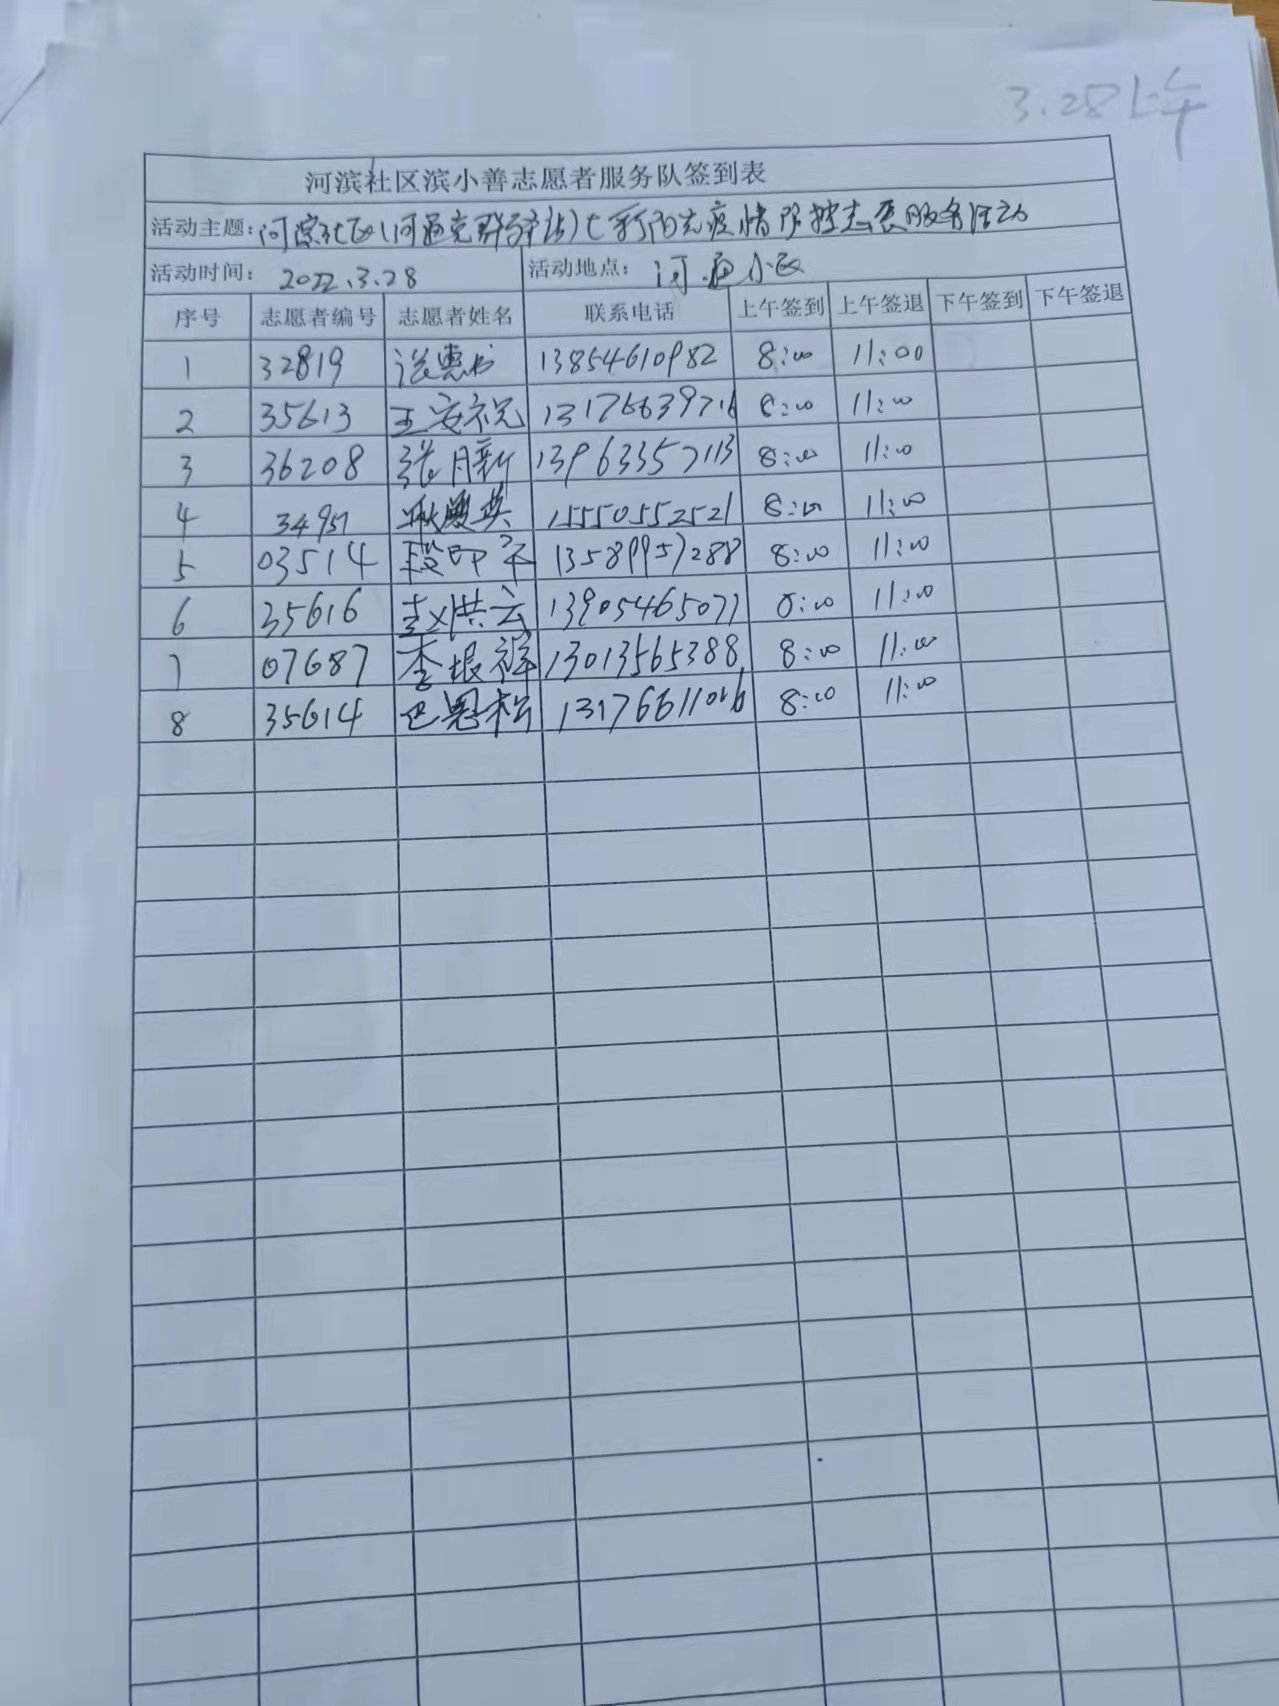 3.28上午
河滨社区滨小善志愿者服务队签到表
活动主题:河滨社区(河通党群驿站)七彩阳光疫情防控志愿服务活动
活动时间: 2022.3.28 活动地点: 河通小区
序号 志愿者编号 志愿者姓名 联系电话 上午签到 上午签退 下午签到 下午签退
1 32819 13854610982 8:00 11:00
2 35613 王安祝 13176639716 8:00 11:00
3 36208 张月新 13963357113 8:00 11:00
4 34951 15550552521 8:00 11:00
5 03514 段印平 13589957288 8:00 11:00
6 35616 赵洪云 13905465077 8:00 11:00
7 07687 李振祥 13013565388 8:00 11:00
8 35614 巴恩松 13176611016 8:00 11:00